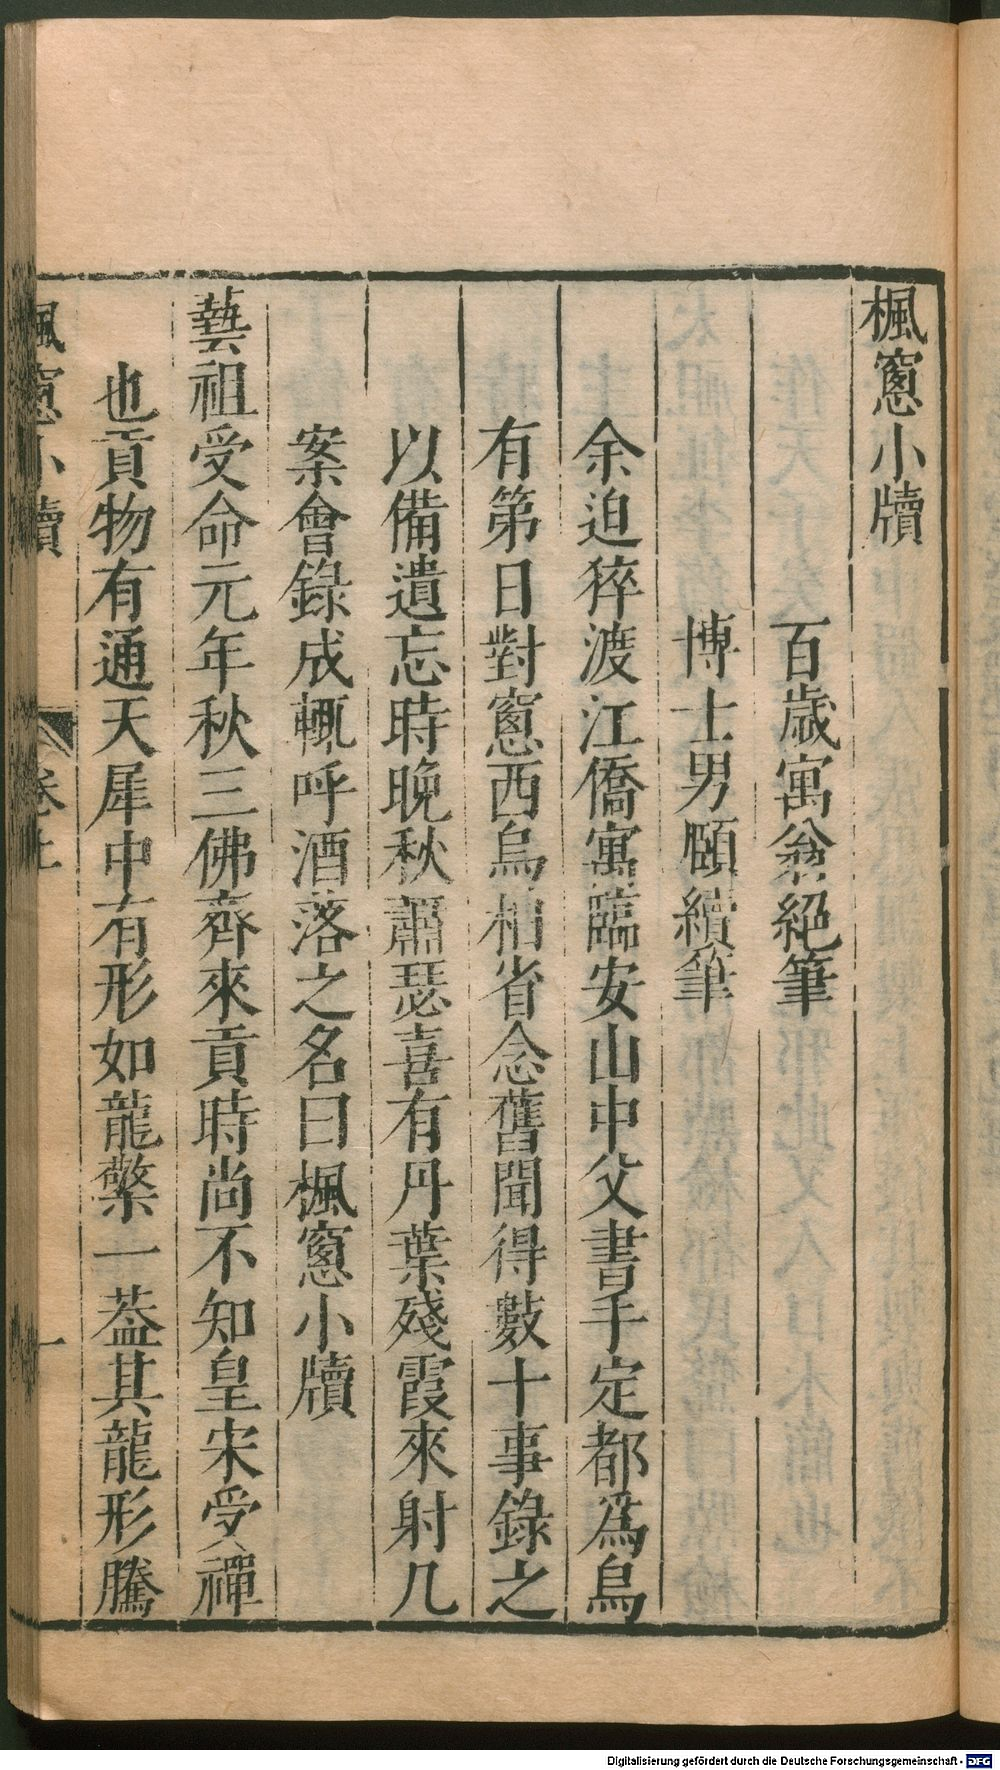 楓窻小牘
百歲寓翁絕筆
博士男頤續筆
余迫猝渡江僑寓臨安山中父書手定都為烏
有第日對窻西烏桕省念舊聞得數十事錄之
以備遺忘時晚秋蕭瑟喜有丹葉殘霞來射几
案會錄成輒呼酒落之名曰楓窻小牘
藝祖受命元年秋三佛齊來貢時尚不知皇宋受禪
也貢物有通天犀中有形如龍擎一葢其龍形騰
楓窻小牘 卷上 一
Digitalisierung gefördert durch die Deutsche Forschungsgemeinschaft - DFG